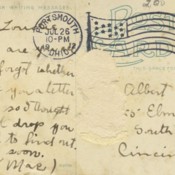 FOR WRITING MESSAGES.
200
PORTSMOUTH
JUL 26
OHIO
Lou
are
forgot whether
you a letter
so I thought
I drop you
to find out.
soon.
(Mae)
Albert
35 Elm
South
Cincin